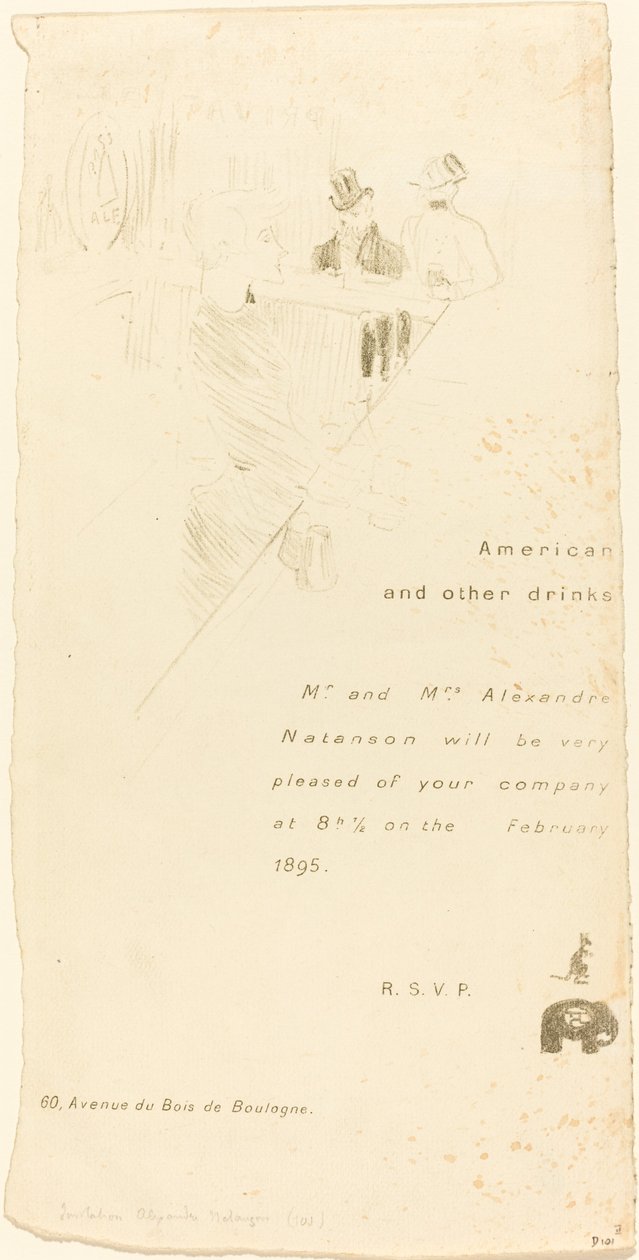 BASS
ALE
American
and other drinks
Mr. and Mrs. Alexandre
Natanson will be very
pleased of your company
at 8h. 1/2 on the February
1895.
R. S. V. P.
60, Avenue du Bois de Boulogne.
Invitation Alexandre Natanson
D101
II